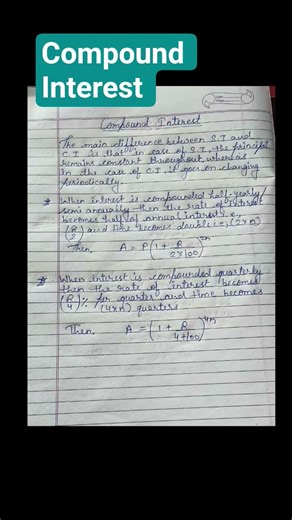 Compound
Interest
Compound Interest
The main difference between S.I and
C.I is that in case of S.I, the principal
remains constant throughout, whereas
in the case of C.I, it goes on changing
periodically.
* When interest is compounded half-yearly/
semi annually then the rate of interest
becomes half of annual interest i.e.
(R/2) and time becomes double i.e, (2×n)
Then, A = P(1 + R/2×100)^2n
* When interest is compounded quarterly
then the rate of interest becomes
(R/4)% per quarter and time becomes
(4×n) quarters
Then, A = (1 + R/4×100)^4n